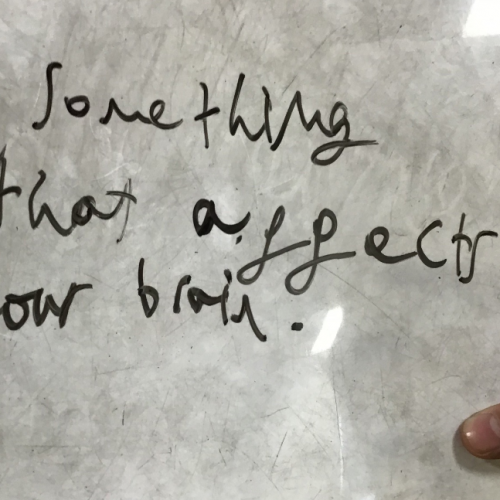 Something
that affects
our brain.